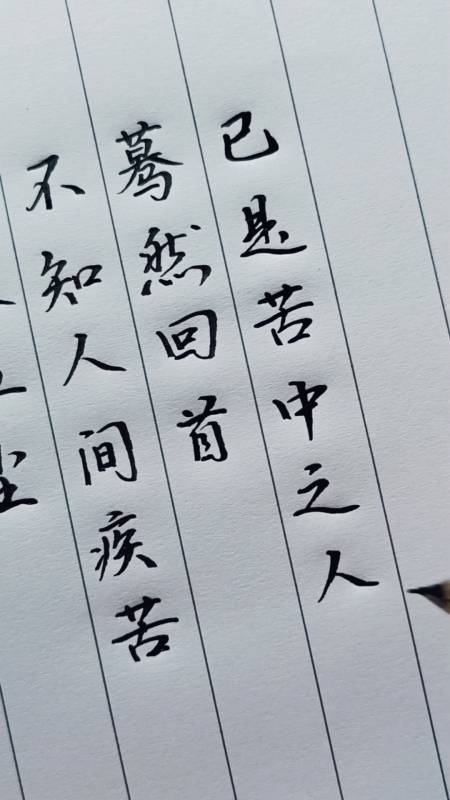 不知人间疾苦
蓦然回首
已是苦中之人